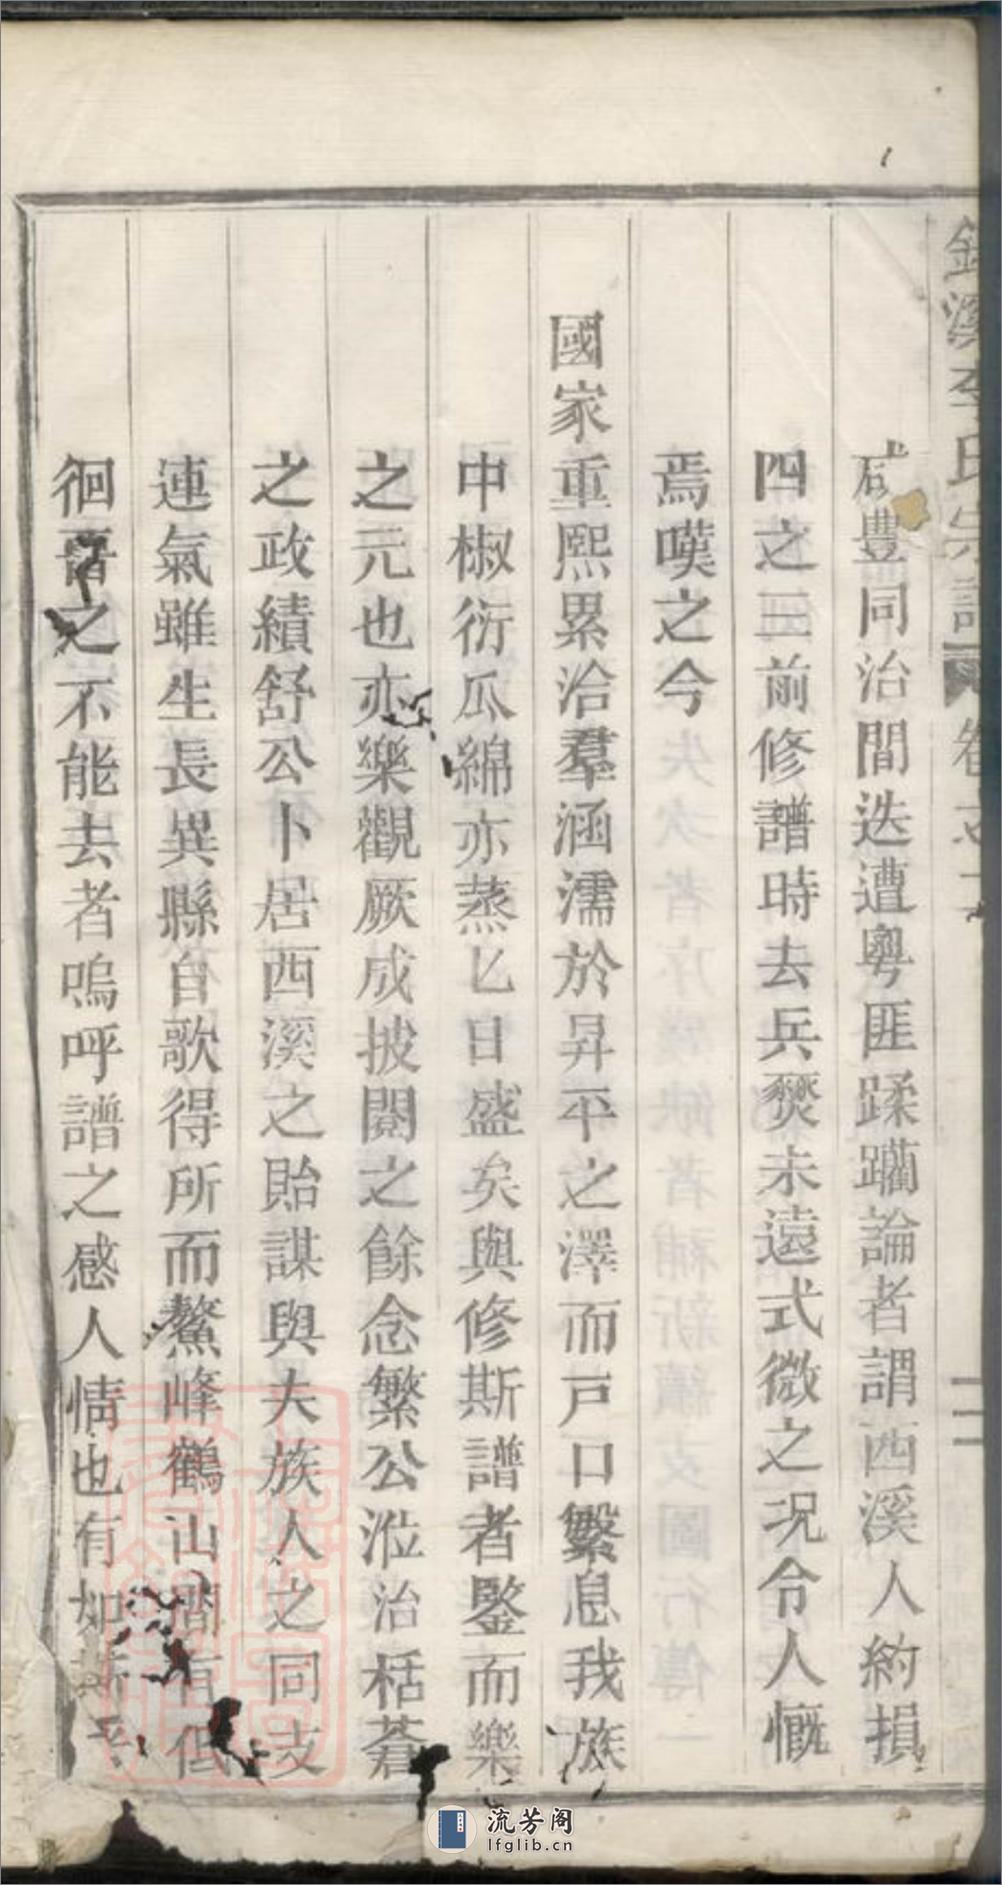 溪李氏宗譜 卷之
咸豐同治間迭遭粵匪蹂躪論者謂西溪人約損
四之三前修譜時去兵燹未遠式微之況令人慨
焉嘆之今
國家重熙累洽羣涵濡於昇平之澤而戸口繁息我族
中椒衍瓜綿亦蒸乜日盛矣與修斯譜者鑒而樂
之元也亦樂觀厥成披閱之餘念繁公涖治栝蒼
之政績舒公卜居西溪之貽謀與大族人之同支
連氣雖生長異縣自歌得所而鰲峰鶴山間有低
徊之不能去者嗚呼譜之感人情也有如斯乎
流芳阁
lfglib.cn